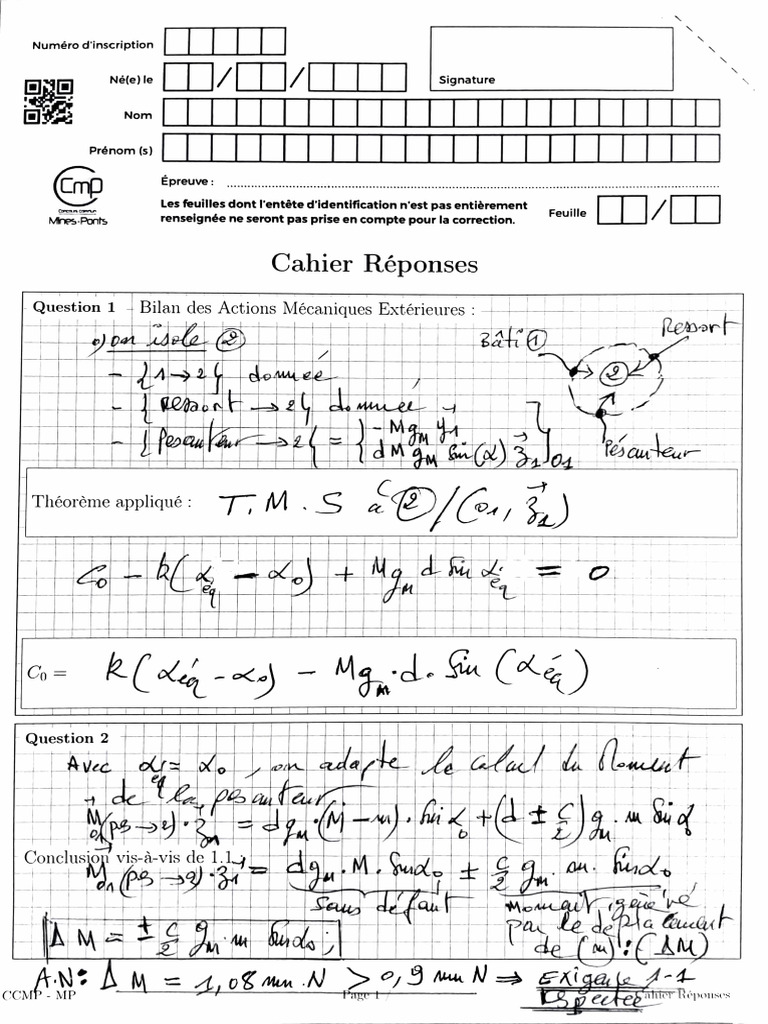 Numéro d'inscription
Né(e) le / /
Signature
Nom
Prénom (s)
Cmp
Concours commun
Mines-Ponts
Épreuve :
Les feuilles dont l'entête d'identification n'est pas entièrement
renseignée ne seront pas prise en compte pour la correction.
Feuille /
Cahier Réponses
Question 1 – Bilan des Actions Mécaniques Extérieures :
o) on isole ②
- {1→2} donnée
- {Ressort → 2} donnée
- {Pesanteur → 2} = { -Mg_M y⃗1
dMg_M sin(α) z⃗1 }_01
Bâti ①
Ressort
②
Pésanteur
Théorème appliqué : T.M.S à ②/(01, z⃗1)
C0 - k(αéq - α0) + Mg_M d sin αéq = 0
C0 = k(αéq - α0) - Mg_M · d. sin(αéq)
Question 2
Avec αéq = α0, on adapte le calcul du Moment
de la pesanteur
M⃗01(pes→2)·z⃗1 = dg_M·(M-m)·sin α0 + (d ± c/2) g_M·m sin α0
Conclusion vis-à-vis de 1.1
M⃗01(pes→2)·z⃗1 = dg_M·M·sin α0 ± c/2 g_M·m·sin α0
sans défaut
moment généré
par le déplacement
de (m) : (ΔM)
ΔM = ± c/2 g_M·m sin α0 ;
A.N: ΔM = 1,08 mm.N > 0,9 mm N ⇒ EXigense 1-1
Respectée
CCMP - MP
Page 1
Cahier Réponses